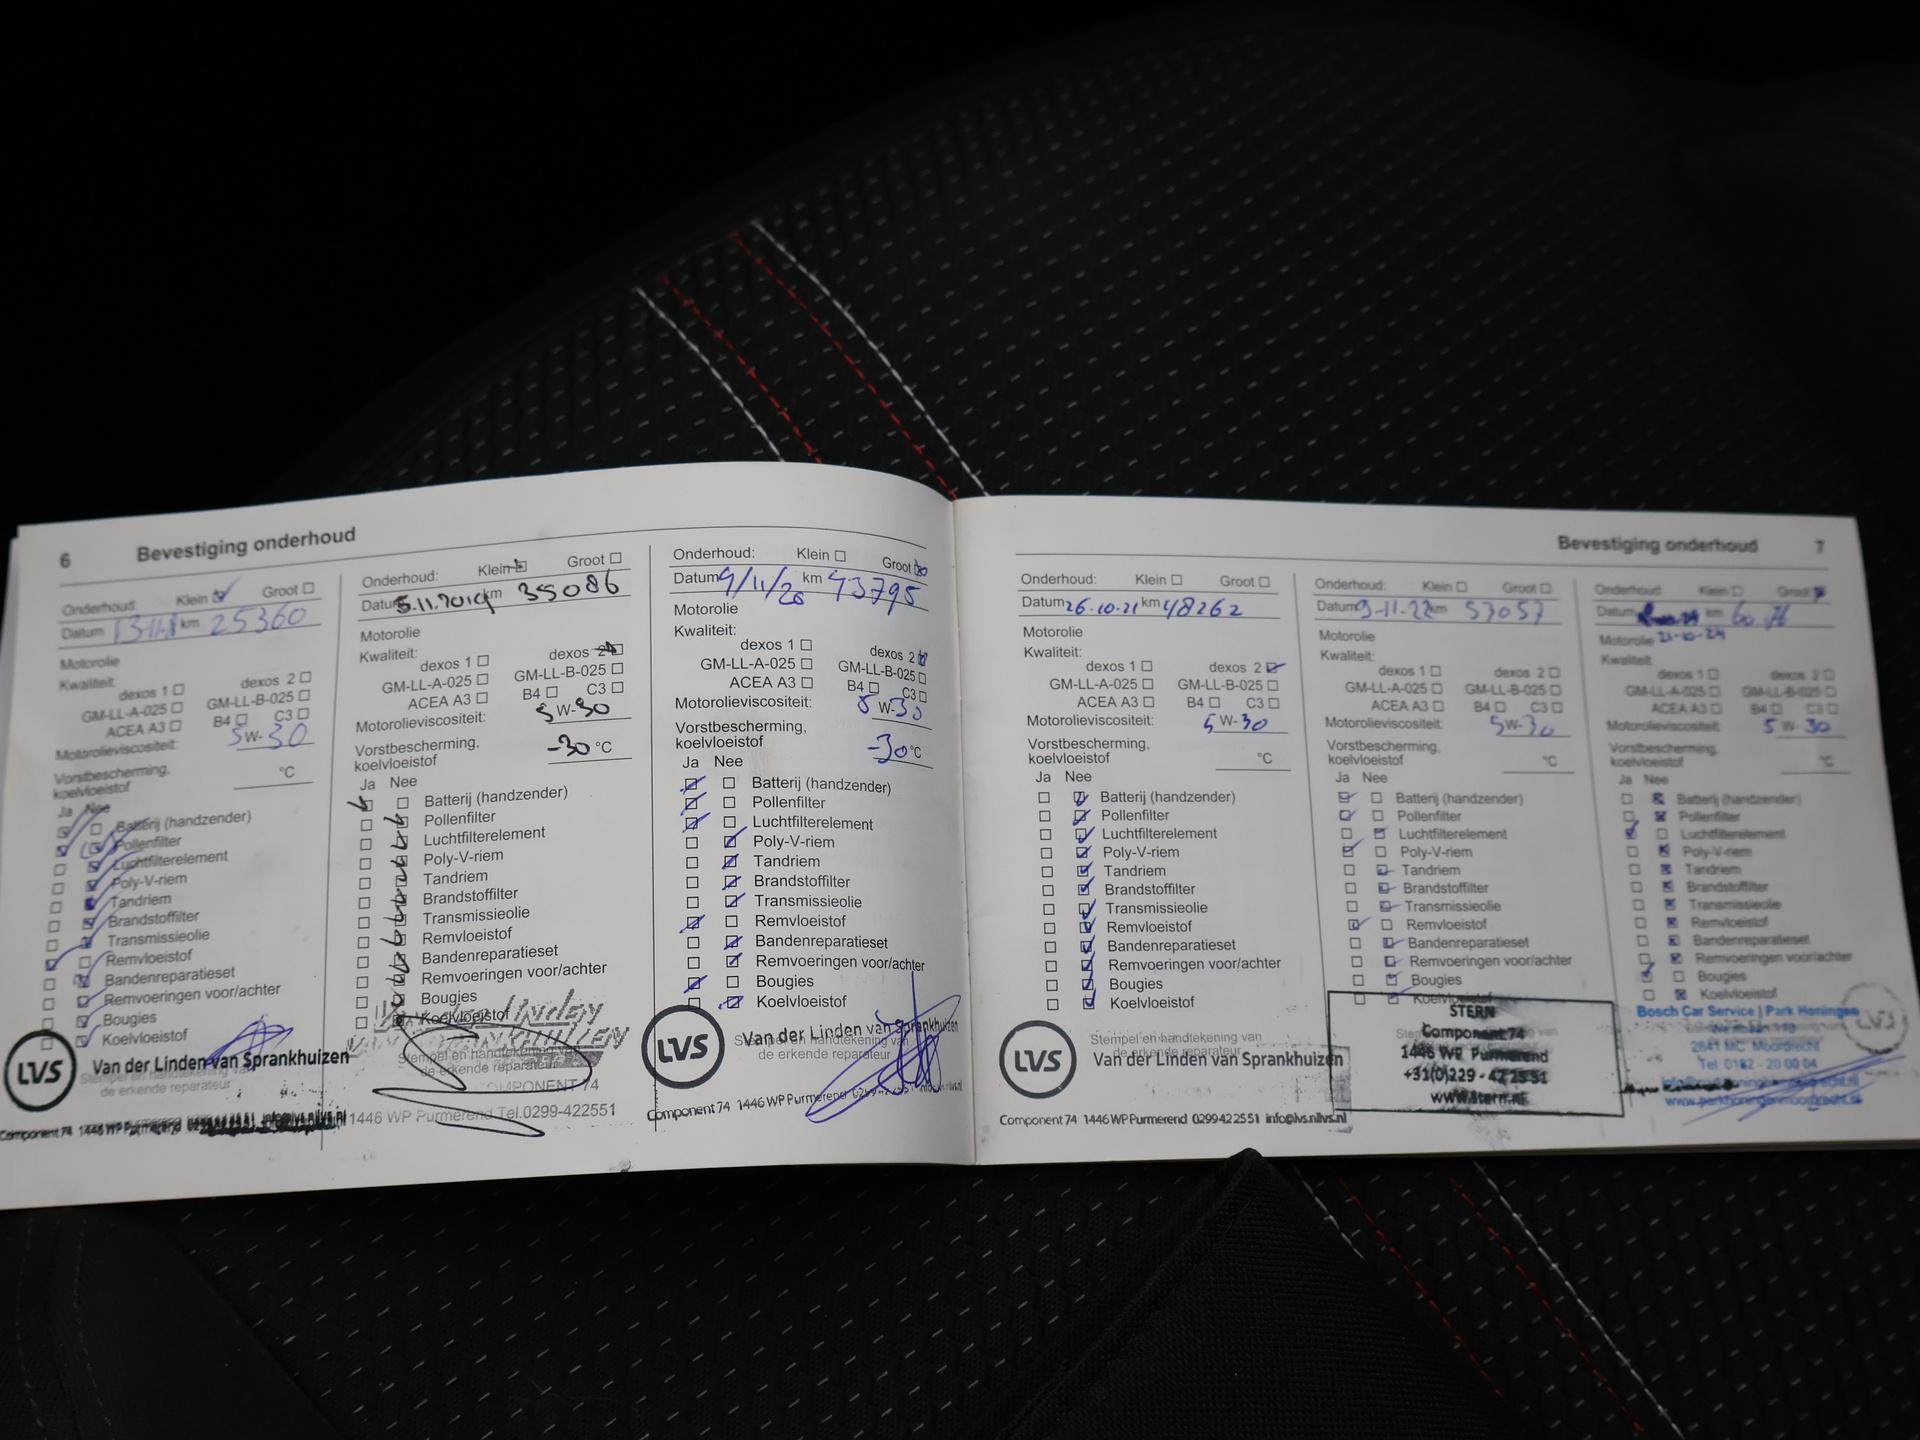 6 Bevestiging onderhoud
Onderhoud: Klein Groot
Datum km 25360
Motorolie
Kwaliteit:
dexos 1 dexos 2
GM-LL-A-025 GM-LL-B-025
ACEA A3 B4 C3
Motorolieviscositeit: 5 W- 30
Vorstbescherming, koelvloeistof °C
Ja Nee
Batterij (handzender)
Pollenfilter
Luchtfilterelement
Poly-V-riem
Tandriem
Brandstoffilter
Transmissieolie
Remvloeistof
Bandenreparatieset
Remvoeringen voor/achter
Bougies
Koelvloeistof
LVS Van der Linden van Sprankhuizen
Stempel en handtekening van
de erkende reparateur
Component 74 1446 WP Purmerend
Onderhoud: Klein Groot
Datum 5.11.2019 km 35086
Motorolie
Kwaliteit:
dexos 1 dexos 2
GM-LL-A-025 GM-LL-B-025
ACEA A3 B4 C3
Motorolieviscositeit: 5 W-30
Vorstbescherming,
koelvloeistof -30 °C
Ja Nee
Batterij (handzender)
Pollenfilter
Luchtfilterelement
Poly-V-riem
Tandriem
Brandstoffilter
Transmissieolie
Remvloeistof
Bandenreparatieset
Remvoeringen voor/achter
Bougies
Koelvloeistof
Stempel en handtekening van
de erkende reparateur
COMPONENT 74
1446 WP Purmerend Tel.0299-422551
Onderhoud: Klein Groot
Datum 9/11/20 km 43795
Motorolie
Kwaliteit:
dexos 1 dexos 2
GM-LL-A-025 GM-LL-B-025
ACEA A3 B4 C3
Motorolieviscositeit: 5 W-30
Vorstbescherming,
koelvloeistof -30°C
Ja Nee
Batterij (handzender)
Pollenfilter
Luchtfilterelement
Poly-V-riem
Tandriem
Brandstoffilter
Transmissieolie
Remvloeistof
Bandenreparatieset
Remvoeringen voor/achter
Bougies
Koelvloeistof
LVS Van der Linden van Sprankhuizen
Stempel en handtekening van
de erkende reparateur
Component 74 1446 WP Purmerend
Bevestiging onderhoud 7
Onderhoud: Klein Groot
Datum 26-10-21 km 48262
Motorolie
Kwaliteit:
dexos 1 dexos 2
GM-LL-A-025 GM-LL-B-025
ACEA A3 B4 C3
Motorolieviscositeit: 5 W-30
Vorstbescherming,
koelvloeistof °C
Ja Nee
Batterij (handzender)
Pollenfilter
Luchtfilterelement
Poly-V-riem
Tandriem
Brandstoffilter
Transmissieolie
Remvloeistof
Bandenreparatieset
Remvoeringen voor/achter
Bougies
Koelvloeistof
Stempel en handtekening van
de erkende reparateur
LVS Van der Linden van Sprankhuizen
Component 74 1446 WP Purmerend 0299422551 info@lvs.nl lvs.nl
Onderhoud: Klein Groot
Datum 9-11-22 km 57057
Motorolie
Kwaliteit:
dexos 1 dexos 2
GM-LL-A-025 GM-LL-B-025
ACEA A3 B4 C3
Motorolieviscositeit: 5W-30
Vorstbescherming,
koelvloeistof °C
Ja Nee
Batterij (handzender)
Pollenfilter
Luchtfilterelement
Poly-V-riem
Tandriem
Brandstoffilter
Transmissieolie
Remvloeistof
Bandenreparatieset
Remvoeringen voor/achter
Bougies
Koelvloeistof
STERN
Component 74
1446 WP Purmerend
+31(0)229 - 42 25 51
www.stern.nl
Onderhoud: Klein Groot
Datum km
Motorolie 21-10-24
Kwaliteit:
dexos 1 dexos 2
GM-LL-A-025 GM-LL-B-025
ACEA A3 B4 C3
Motorolieviscositeit: 5 W-30
Vorstbescherming,
koelvloeistof °C
Ja Nee
Batterij (handzender)
Pollenfilter
Luchtfilterelement
Poly-V-riem
Tandriem
Brandstoffilter
Transmissieolie
Remvloeistof
Bandenreparatieset
Remvoeringen voor/achter
Bougies
Koelvloeistof
Bosch Car Service | Park Honingen
2841 MC Moordrecht
Tel. 0182 - 20 00 04